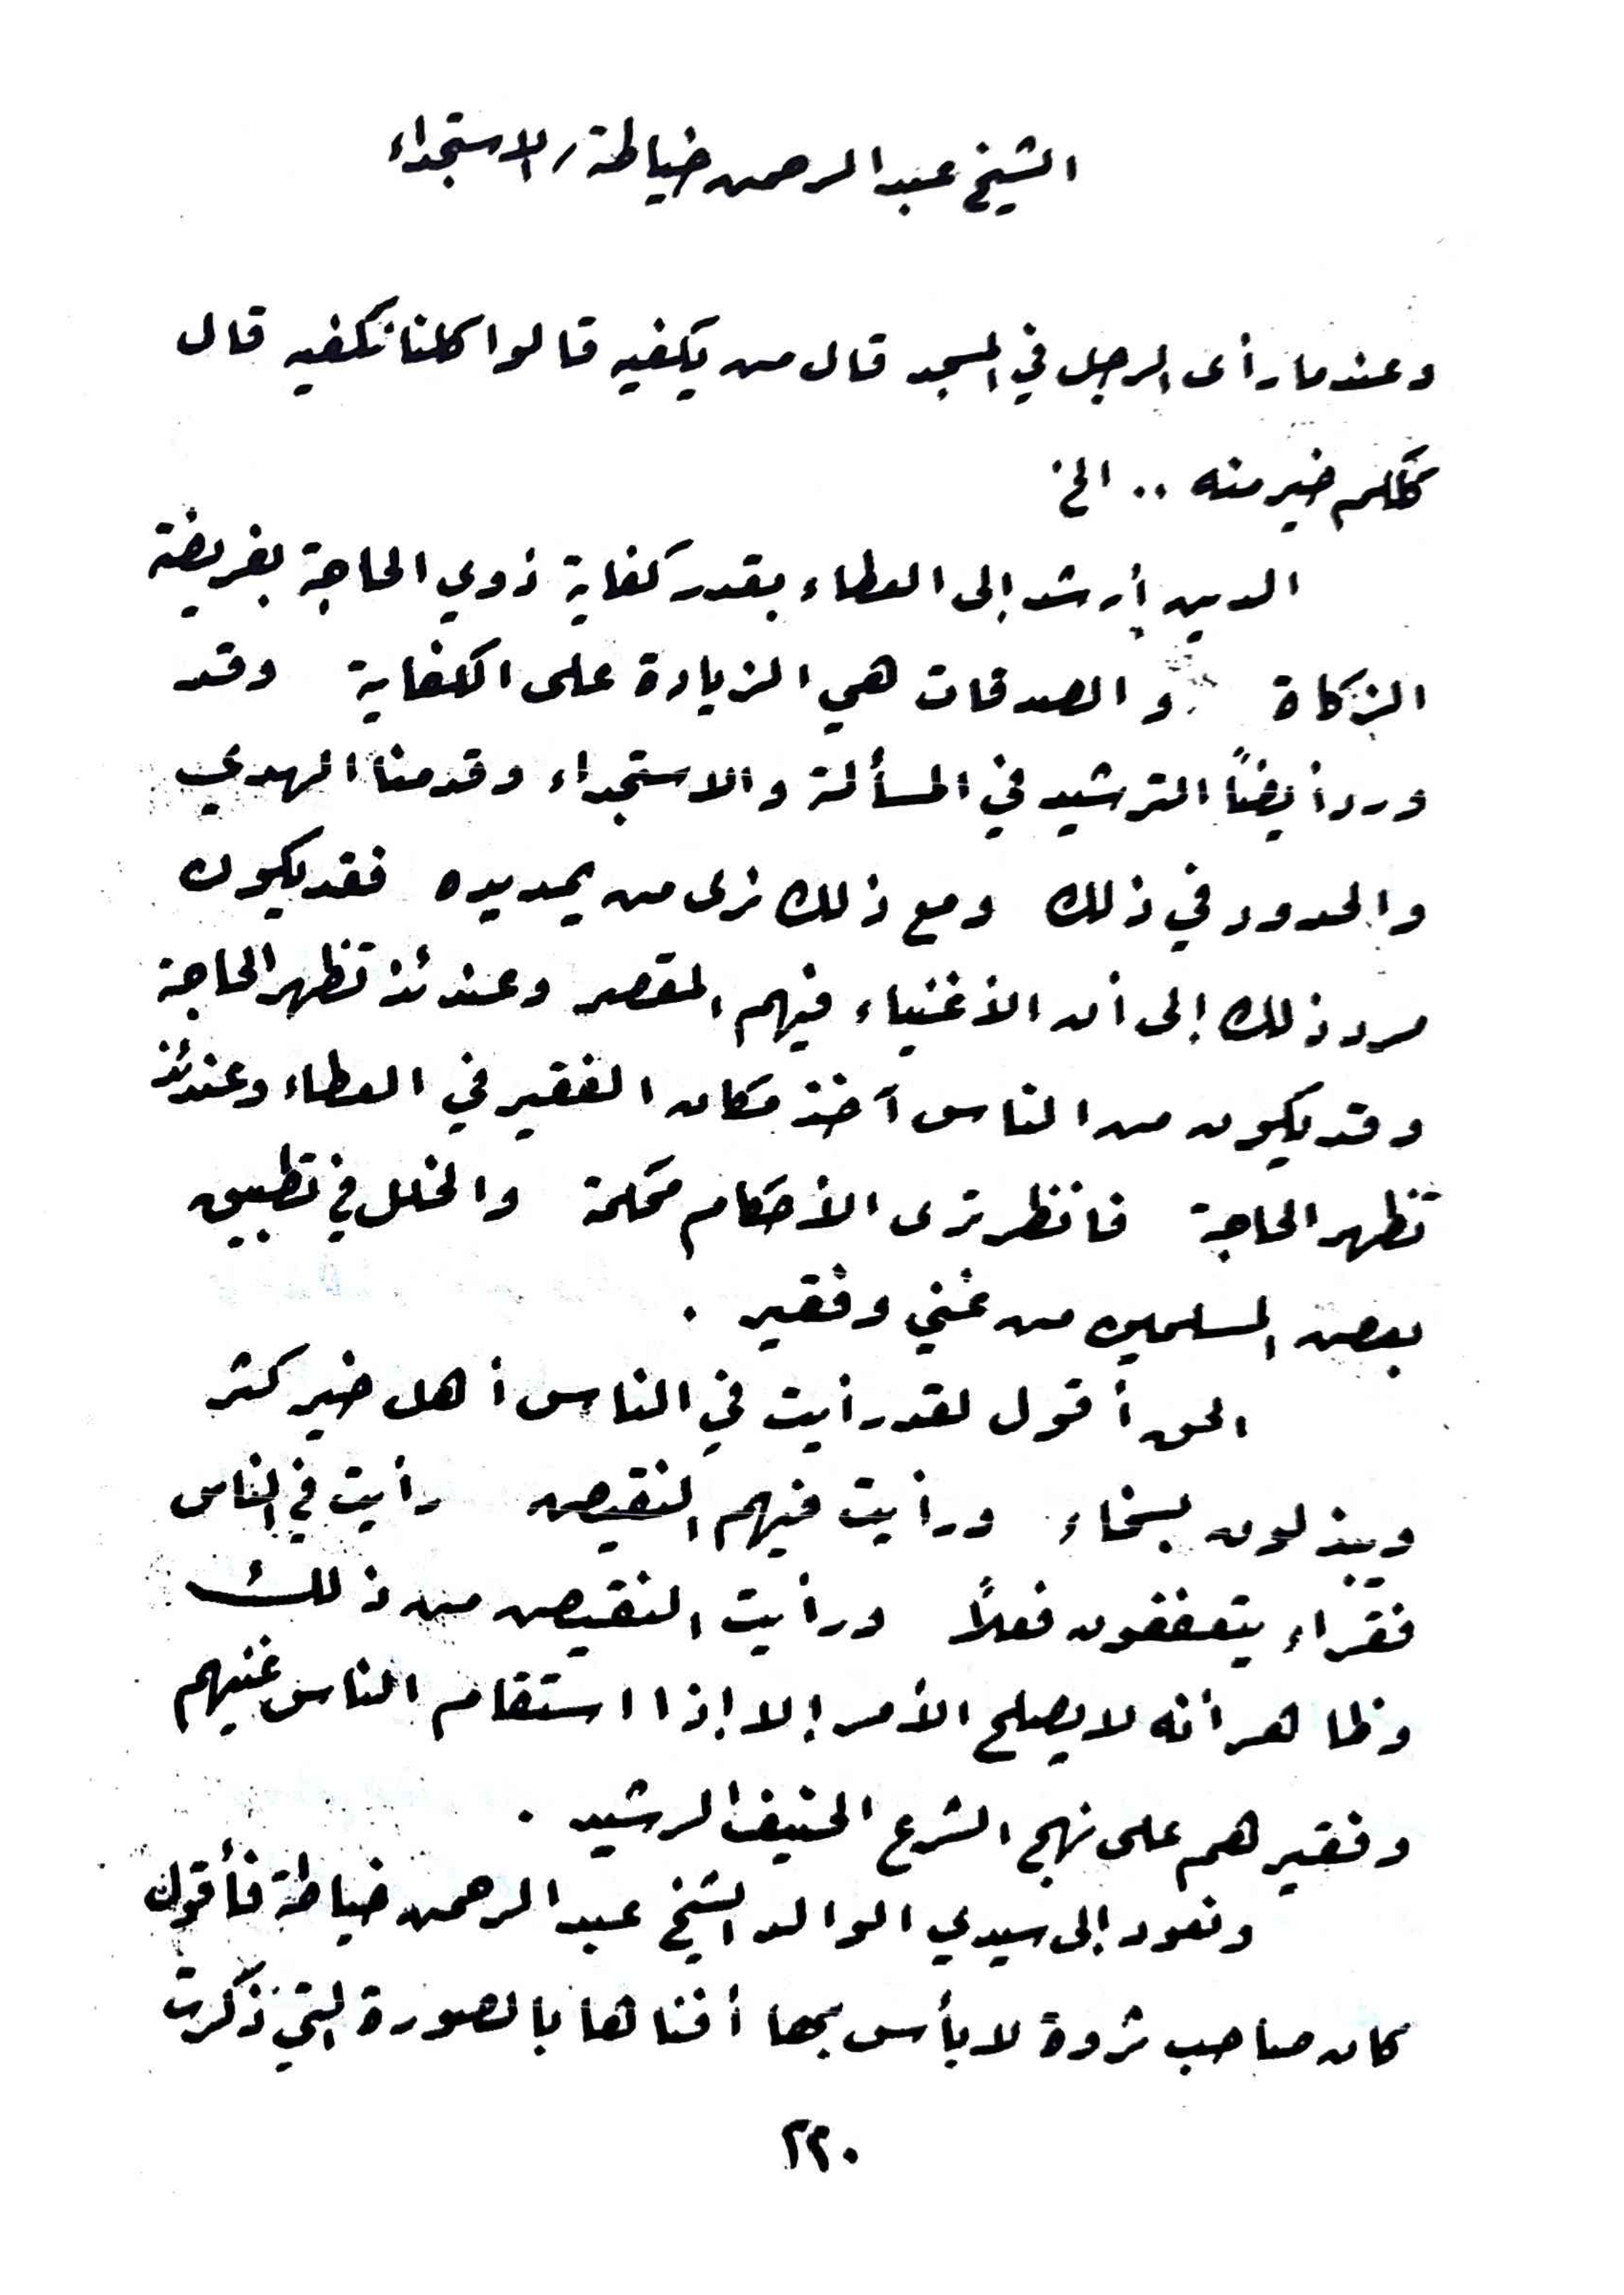 الشيخ عبد الرحمن خياطة / الاستجداء
وعندما رأى الرجل في المسجد قال من يكفيه قالوا كلنا نكفيه قال
كلكم خير منه .. الخ
الدين أرشد إلى العطاء بقدر كفاية ذوي الحاجة بفريضة
الزكاة والصدقات هي الزيادة على الكفاية وقد
ورد أيضاً الترشيد في المسألة والاستجداء وقدمنا الهدي
والحدود في ذلك ومع ذلك نرى من يمد يده فقد يكون
مرد ذلك إلى أن الأغنياء فيهم المقصر وعندئذ تظهر الحاجة
وقد يكون من الناس آخذ مكان الفقير في العطاء وعندئذ
تظهر الحاجة فانظر ترى الأحكام محكمة والخلل في تطبيق
بعض المسلمين من غني وفقير .
الحق أقول لقد رأيت في الناس أهل خير كثر
ويبذلون بسخاء ورأيت فيهم النقيض رأيت في الناس
فقراء يتعففون فعلاً ورأيت النقيض من ذلك
وظاهر أنه لا يصلح الأمر إلا إذا استقام الناس غنيهم
وفقيرهم على نهج الشرع الحنيف الرشيد .
ونعود إلى سيدي الوالد الشيخ عبد الرحمن خياطة فأقول
كان صاحب ثروة لا بأس بها أفناها بالصورة التي ذكرت
٢٢٠